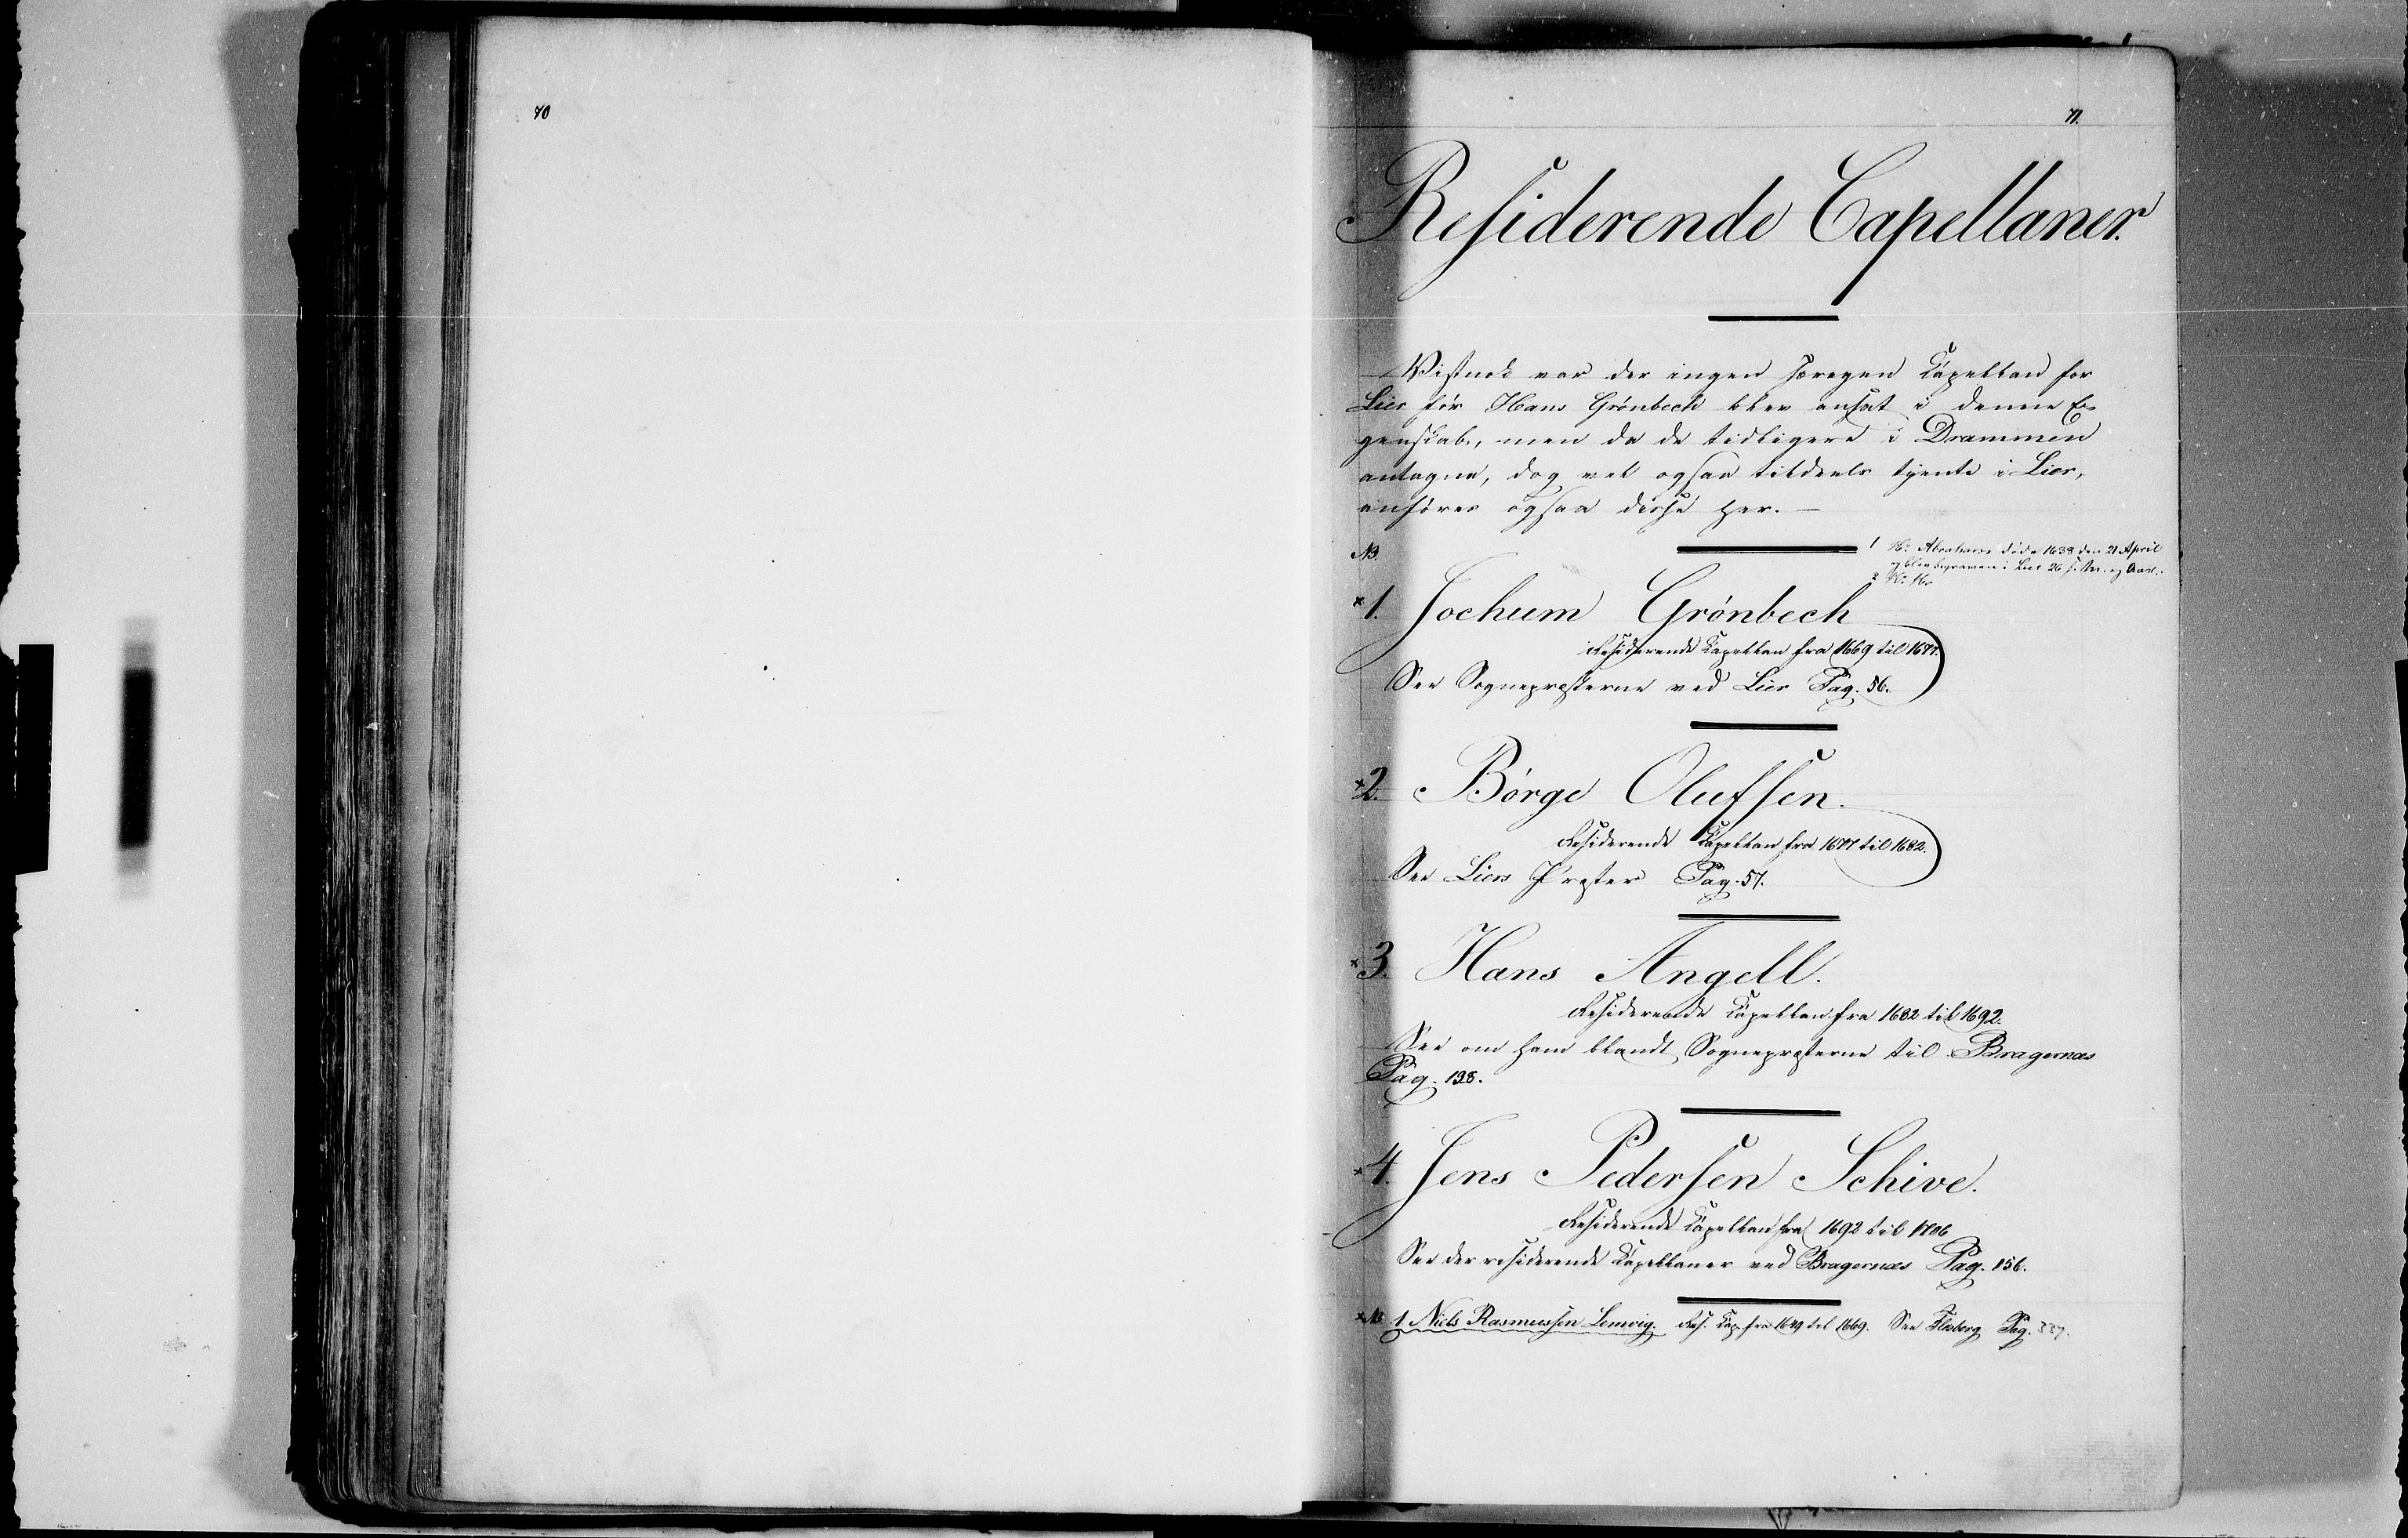 70
71.
Residerende Capellaner.
Vistnok var der ingen særegen Kapellan for
Lier før Hans Grønbech blev ansat i denne E-
genskab, men da de tidligere i Drammen
antagne, dog vel ogsaa tildeels tjente i Lier,
anføres ogsaa disse her. —
NB.
1 Hr. Abraham døde 1638 den 21 April
og blev begraven i Lier 26 s. M. og Aar.
2 Hr.
×1. Jochum Grønbech
Residerende Kapellan fra 1669 til 1677.
See Sognepræsterne ved Lier Pag. 56.
×2. Børge Olufsen.
Residerende Kapellan fra 1677 til 1682.
See Liers Præster Pag. 57.
×3. Hans Angell.
Residerende Kapellan fra 1682 til 1692.
See om ham blandt Sognepræsterne til Bragernæs
Pag. 138.
×4. Jens Pedersen Schive.
Residerende Kapellan fra 1692 til 1706
See der residerende Kapellaner ved Bragernæs Pag. 156.
×NB. 1 Niels Rasmussen Lemvig. Res. Kap. fra 1649 til 1669. See Flesberg Pag. 337.